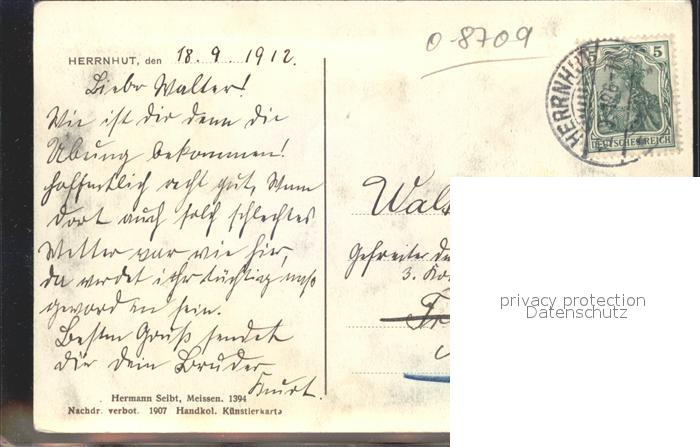 o-8709
HERRNHUT, den 18. 9. 1912.
Lieber Walter!
Wie ist dir denn die
Übung bekommen!
Hoffentlich recht gut, Wenn
dort auch solch schlechtes
Wetter war wie hier,
da werdet ihr tüchtig naß
geworden sein.
Besten Gruß sendet
dir dein Bruder
Kurt.
Hermann Seibt, Meissen. 1394
Nachdr. verbot. 1907 Handkol. Künstlerkarte
5 5
DEUTSCHES REICH
HERRNHUT
Walt
Gefreiter de
3. Ko
privacy protection
Datenschutz